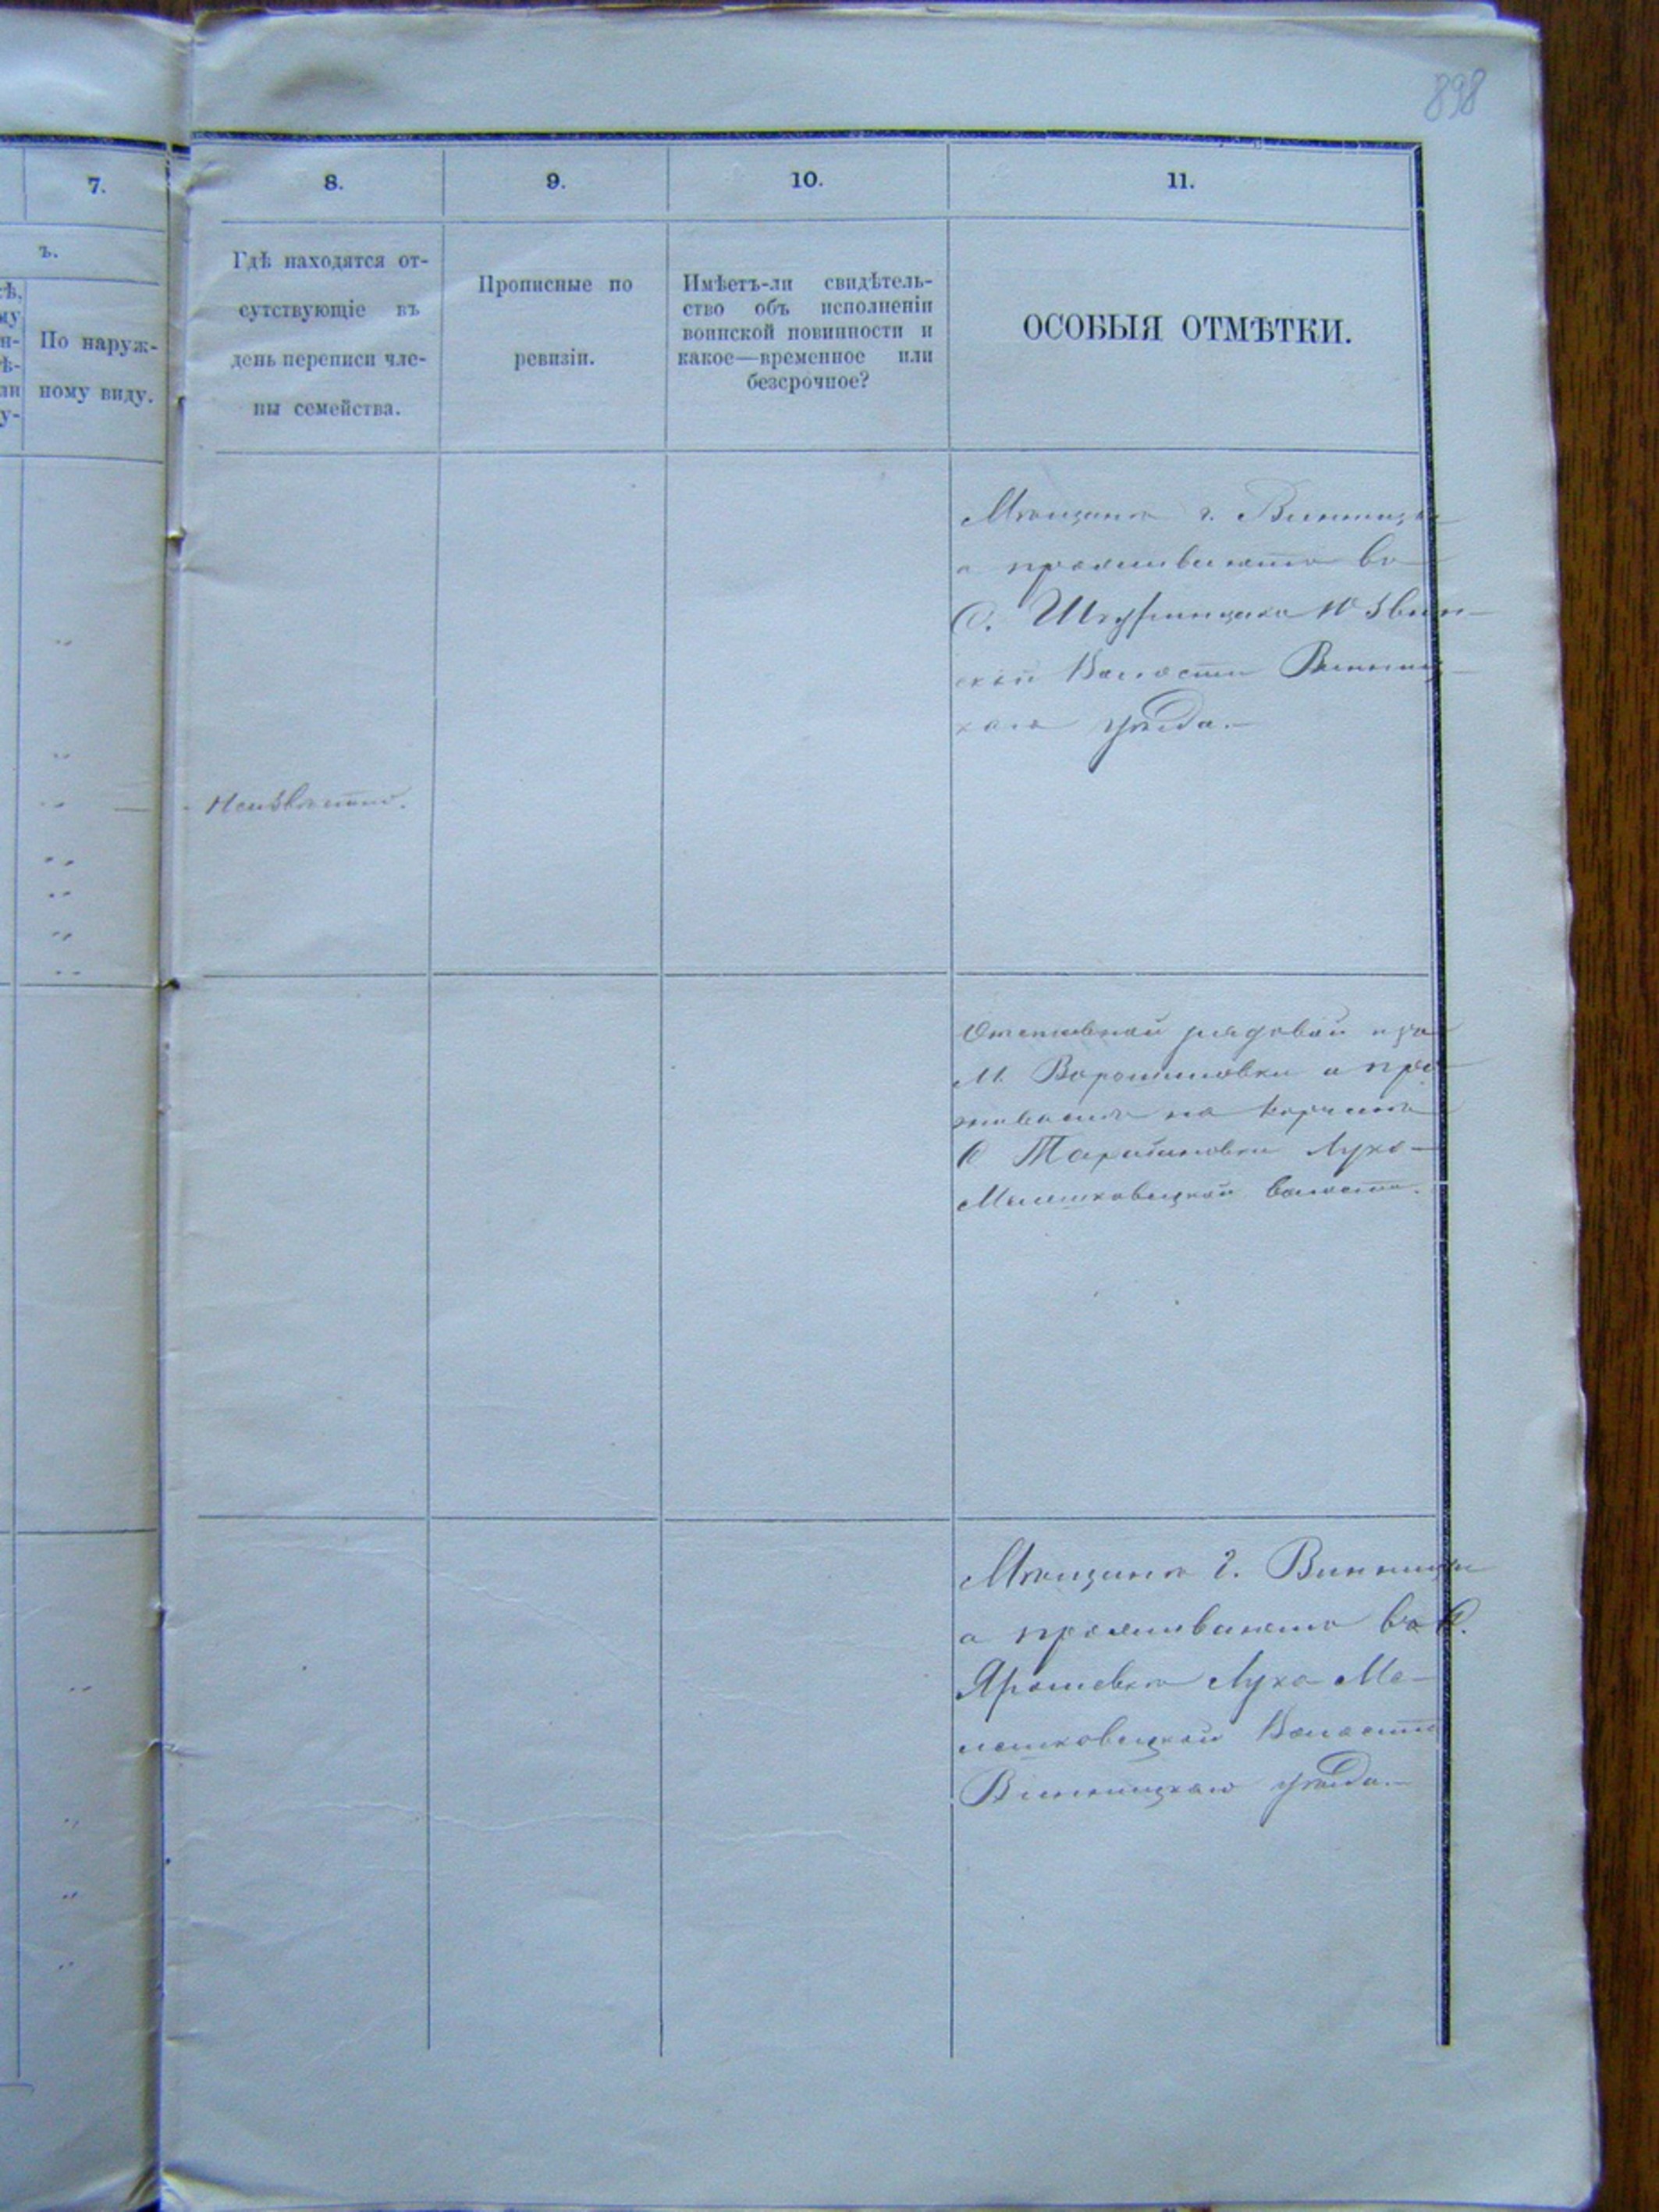 898
7.
8.
9.
10.
11.
ъ.
По наруж-
ному виду.
Гдѣ находятся от-
сутствующіе въ
день переписи чле-
ны семейства.
Прописные по
ревизіи.
Имѣетъ-ли свидѣтель-
ство объ исполненіи
воинской повинности и
какое—временное или
безсрочное?
ОСОБЫЯ ОТМѢТКИ.
Мѣщанинъ г. Винницы
а проживаетъ въ
С. Шкуринцахъ
ской Волости Винниц-
каго уѣзда.—
Неизвѣстно.
Отставной рядовой
М. Вороновки а про
живаетъ на корчмѣ
С Лука-
Мелешковецкой волости.
Мѣщанинъ г. Винницы
а проживаетъ въ С.
Ярошевкѣ Лука-Ме-
лешковецкой Волости
Винницкаго уѣзда.—